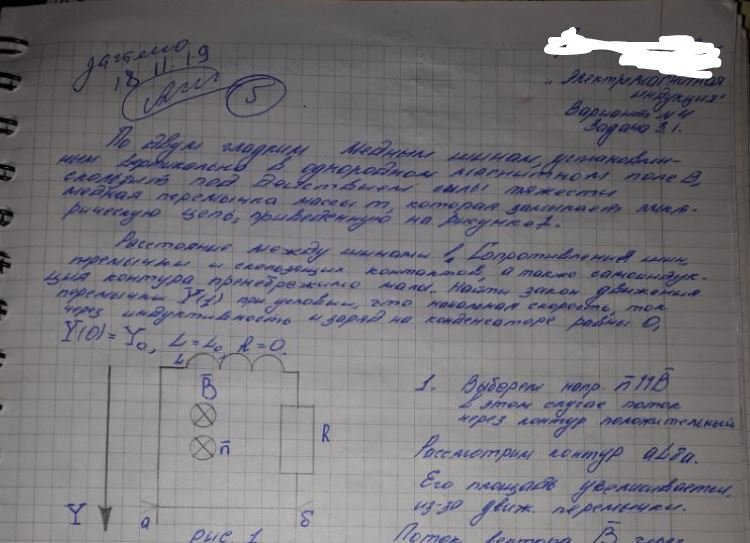 зачтено
18.11.19
5
"Электромагнитная
индукция"
Вариант №4
Задача 3.1.
По двум гладким медным шинам, установлен-
ным вертикально в однородном магнитном поле B,
скользит под действием силы тяжести
медная перемычка массы m, которая замыкает элект-
рическую цепь, приведенную на рисунке 1.
Расстояние между шинами l. Сопротивления шин,
перемычки и скользящих контактов, а также самоиндук-
ция контура пренебрежимо малы. Найти закон движения
перемычки Y(t) при условии, что начальная скорость, ток
через индуктивность и заряд на конденсаторе равны 0,
Y(0) = Y₀, L = L₀, R = 0.
L
B̄
n̄
R
Y
а
б
рис 1
1. Выберем напр. n̄ ↑↑ B̄
в этом случае поток
через контур положительный
Рассмотрим контур aLбa.
Его площадь увеличивается
из-за движ. перемычки.
Поток вектора B̄ через